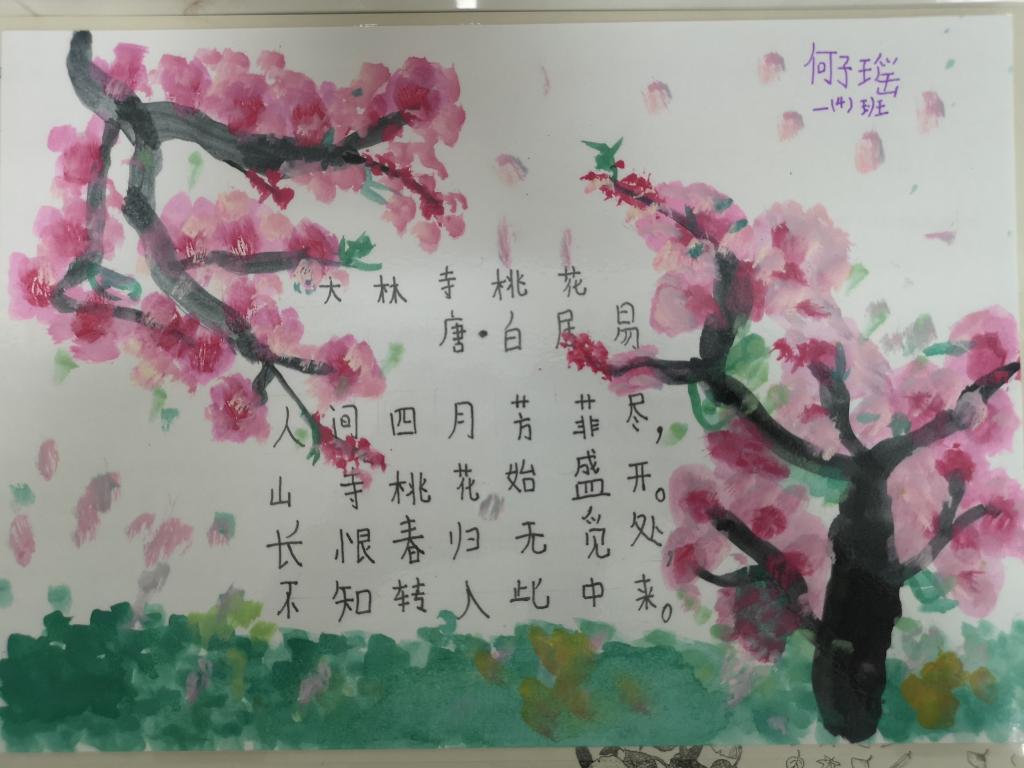 何子瑶
一(4)班
大林寺桃花
唐·白居易
人间四月芳菲尽，
山寺桃花始盛开。
长恨春归无觅处，
不知转入此中来。